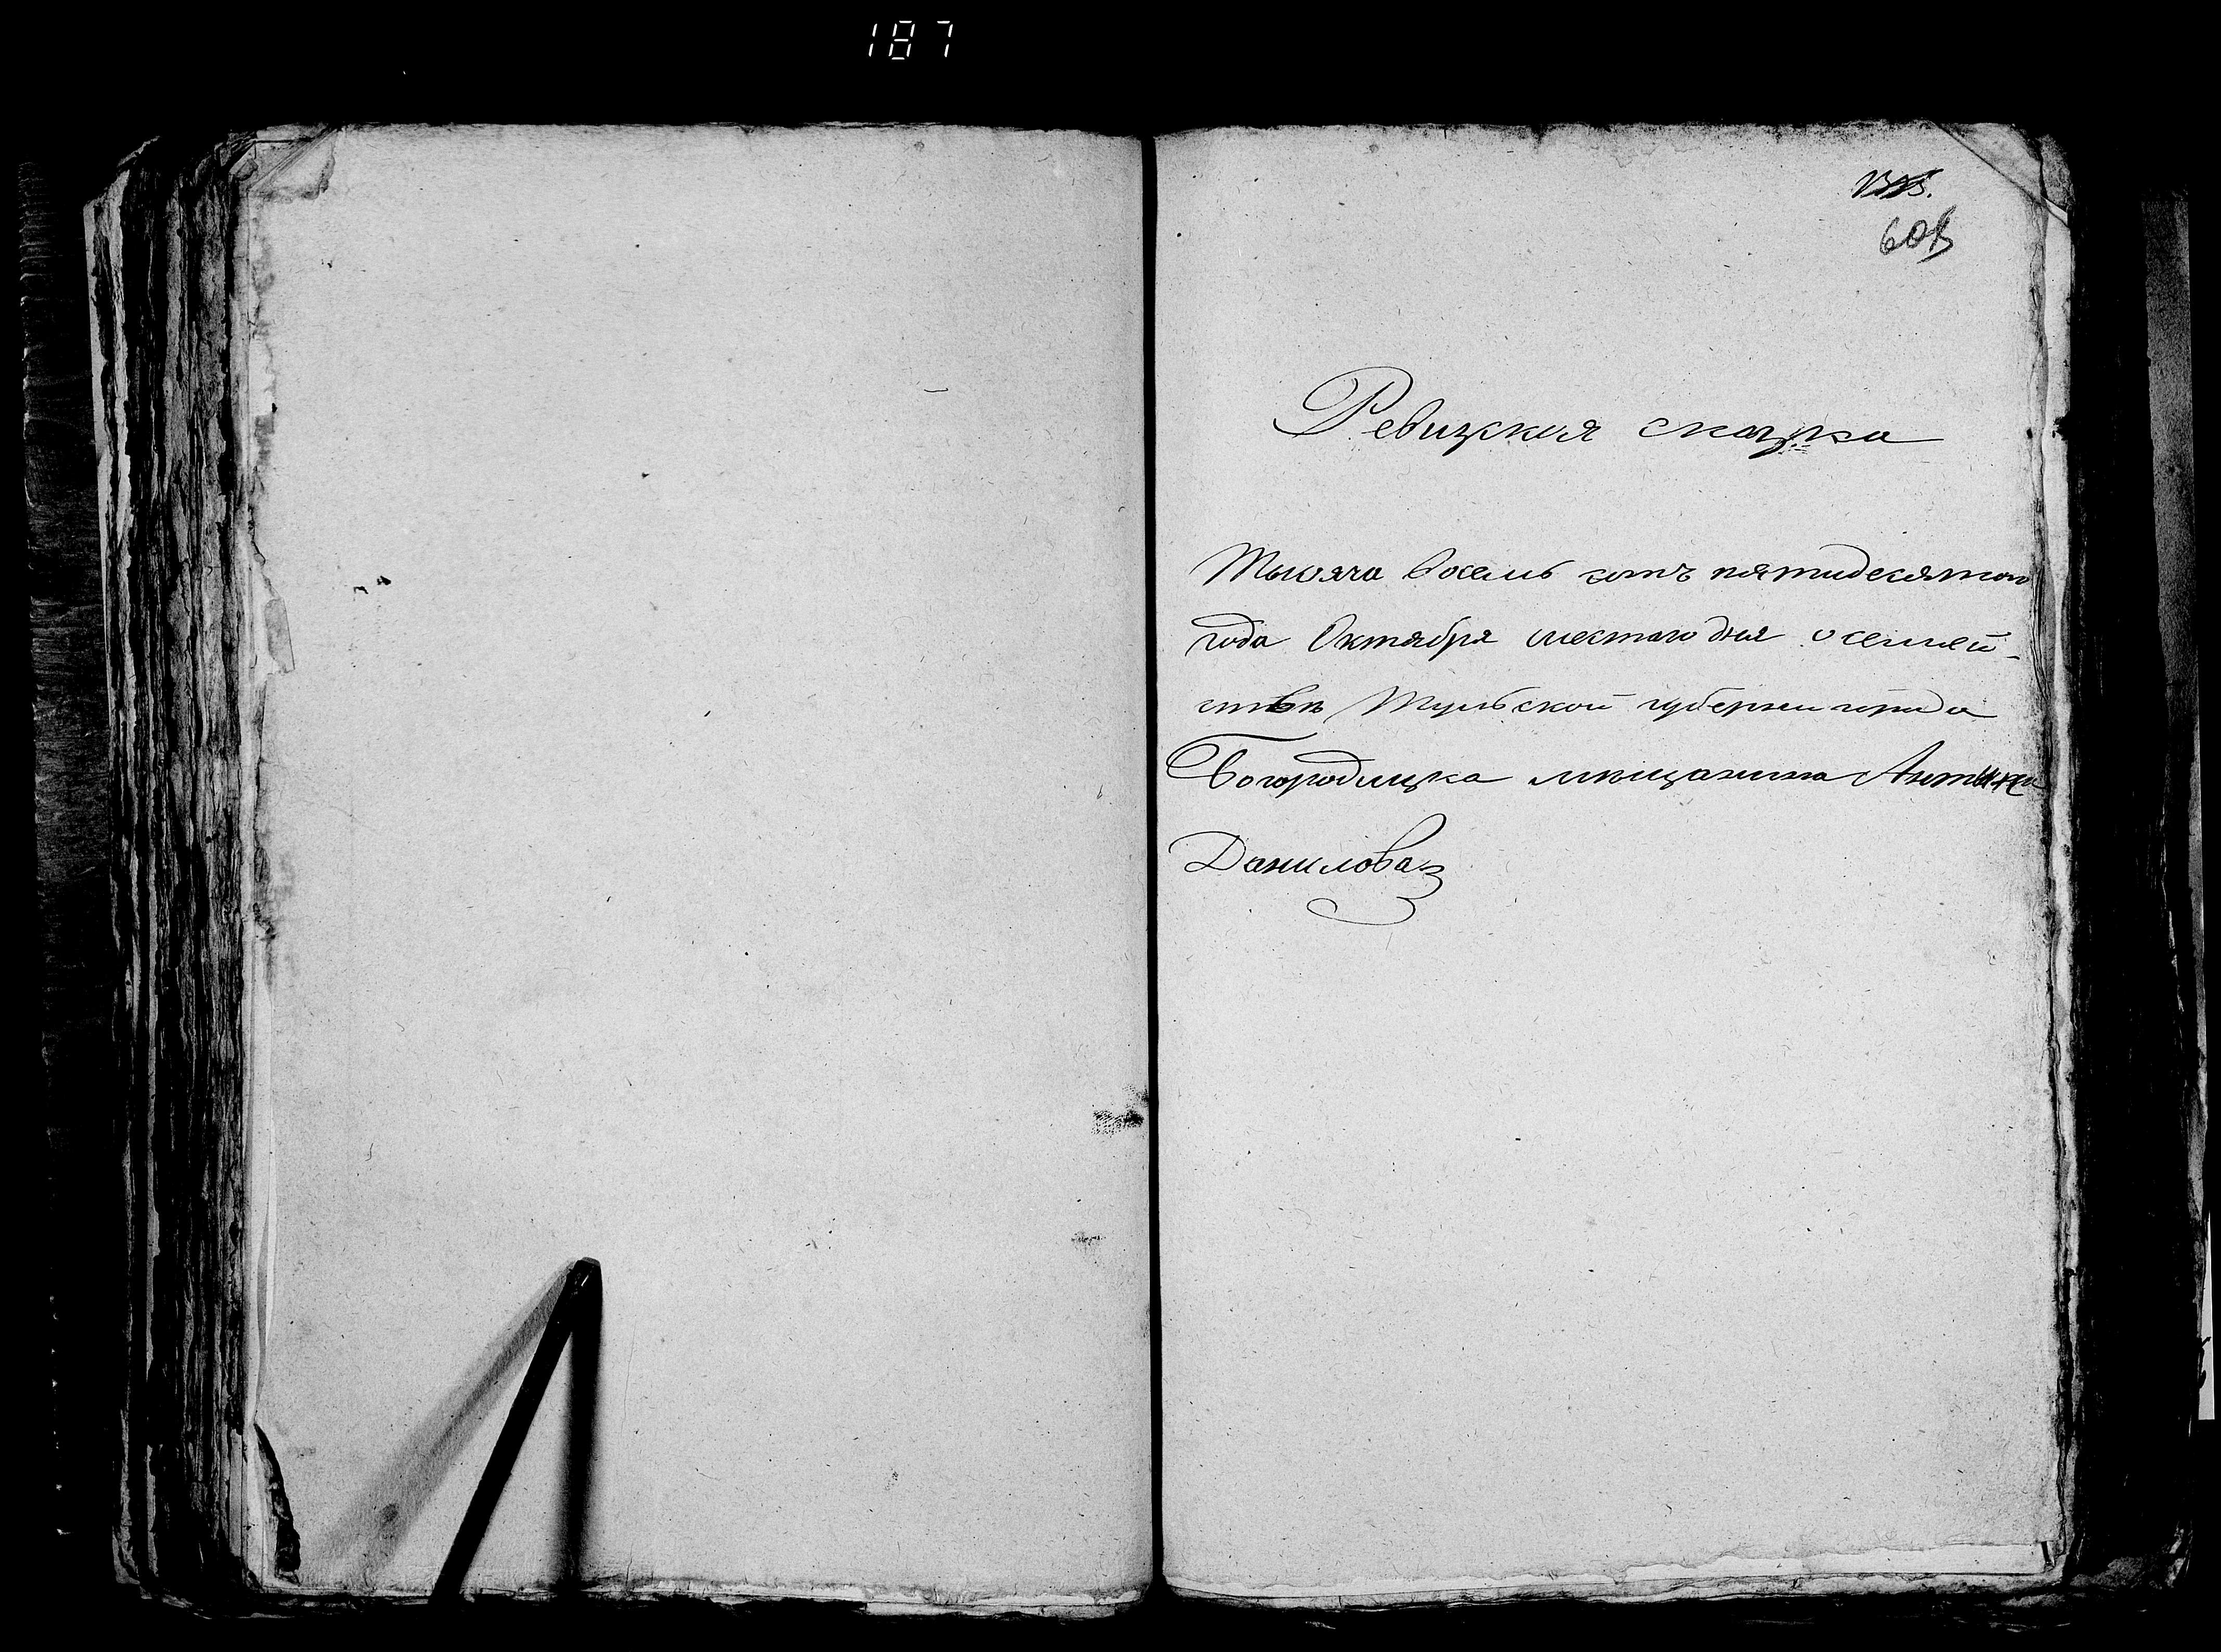 187
Ревизкая сказка
Тысяча восемь сотъ пятидесятого
года Октября шестаго дня о семей-
ствѣ Тульской губернии города
Богородицка мѣщанина
Данилова